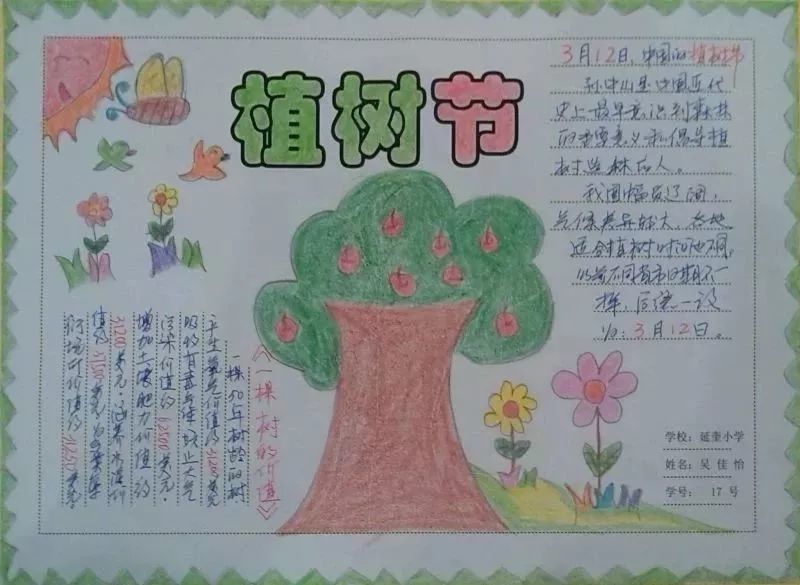 植树节
3月12日,中国的植树节
孙中山是中国近代
史上最早意识到森林
的重要意义和倡导植
树造林的人。
我国幅员辽阔,
气候差异较大,各地
适合植树时间也不同,
以前不同省市日期不一
样,后统一设
为:3月12日。
《一棵树的价值》
一棵50年树龄的树
产生氧气价值约31200美元
吸收有毒气体防止大气
污染价值约62500美元
增加土壤肥力价值约
31200美元,涵养水源价
值约37500美元
价值约31250美元。
学校:延奎小学
姓名:吴佳怡
学号: 17 号